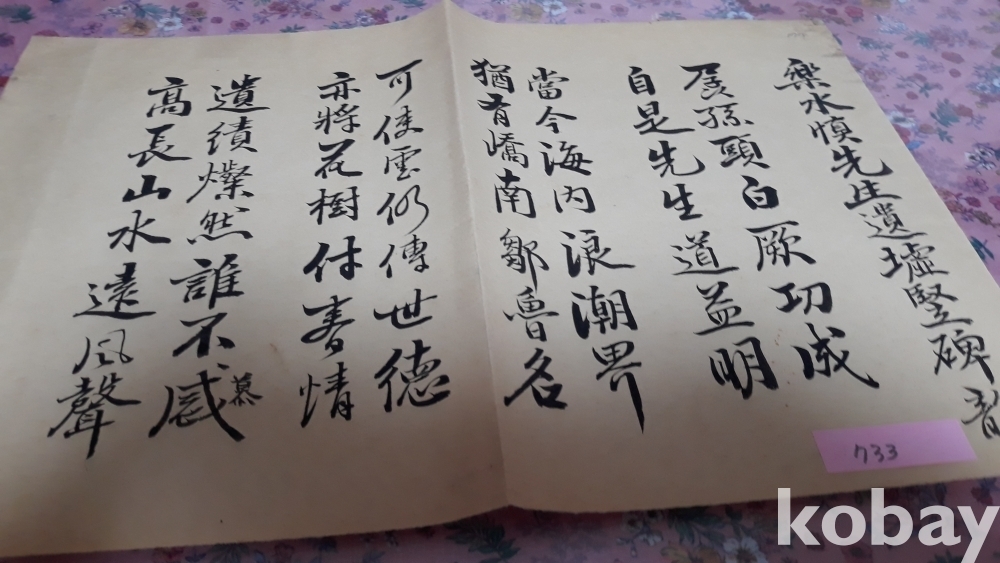 樂水愼先生遺墟竪碑韵
孱孫頭白厥功成
自是先生道益明
當今海內浪潮界
猶有嶠南鄒魯名
可使雲仍傳世德
亦將花樹付春情
遺績燦然誰不感慕
高長山水遠風聲
733
kobay